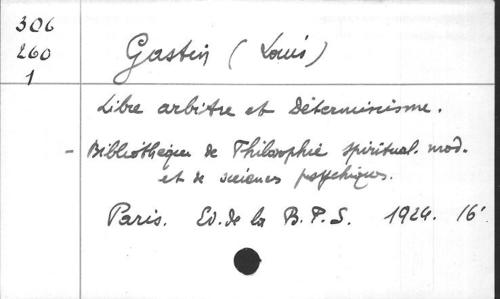 306
260
1
Gastin (Louis)
Libre arbitre et Déterminisme.
- Bibliothèque de Philosophie spiritual. mod.
et de sciences psychiques.
Paris. Ed. de la B.P.S. 1924. 16°